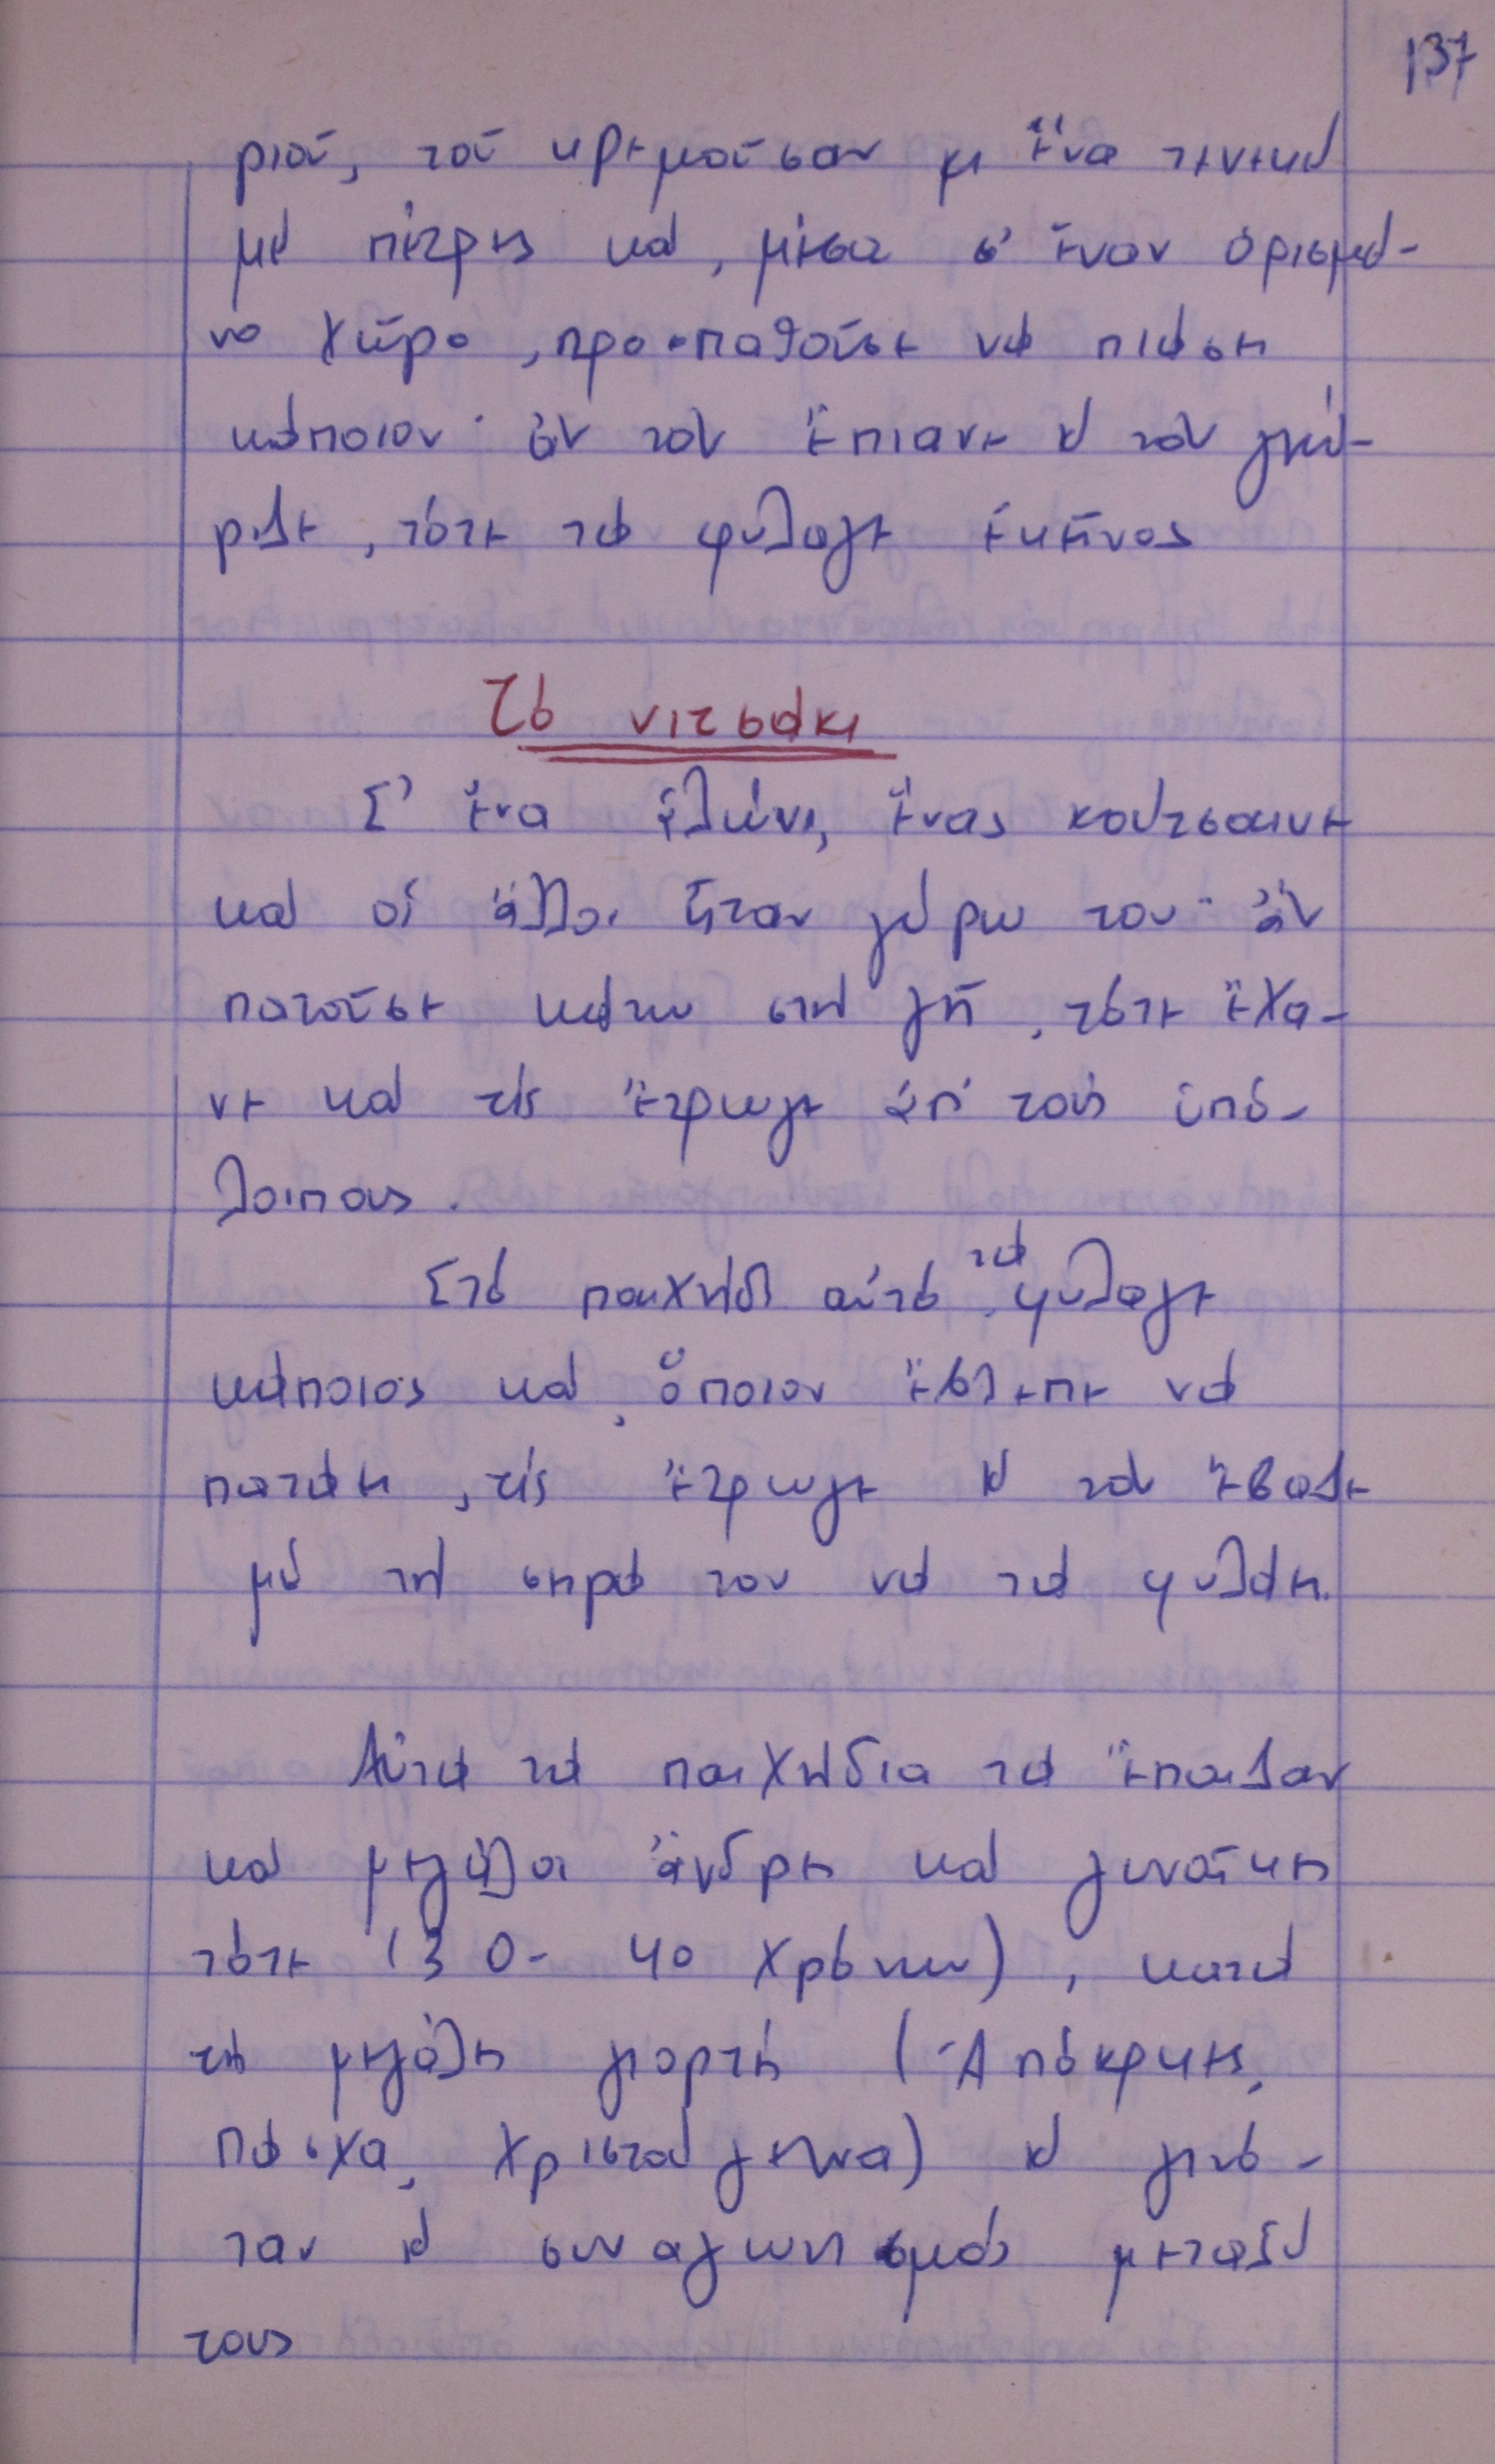 137
ριοῦ, τοῦ κρεμοῦσαν κι ἕνα τενεκὲ
μὲ πέτρες καὶ, μέσα σ' ἕναν ὁρισμέ-
νο χῶρο, προσπαθοῦσε νὰ πιάσει
κάποιον· ἂν τὸν ἔπιανε κὶ τὸν γνώ-
ριζε, τότε τὰ φύλαγε ἐκεῖνος
Τὸ νιτσάκι
Σ' ἕνα ἁλώνι, ἕνας κούτσαινε
καὶ οἱ ἄλλοι ἦταν γύρω του· ἂν
πατοῦσε κάτω στὴ γῆ, τότε ἔχα-
νε καὶ τὶς ἔτρωγε ἀπ' τοὺς ὑπό-
λοιπους.
Στὸ παιχνίδι αὐτὸ τὰ φύλαγε
κάποιος καὶ, ὅποιον ἔβλεπε νὰ
πατάει, τὶς ἔτρωγε κὶ τὸν ἔβαζε
μὲ τὴ σειρά του νὰ τὰ φυλάει.
Αὐτὰ τὰ παιχνίδια τὰ ἔπαιζαν
καὶ μεγάλοι ἄνδρες καὶ γυναῖκες
τότε (30- 40 χρόνων), κατὰ
τὶς μεγάλες γιορτές (Ἀπόκριες,
Πάσχα, Χριστούγεννα) κὶ γινό-
ταν κὶ συναγωνισμὸς μεταξύ
τους